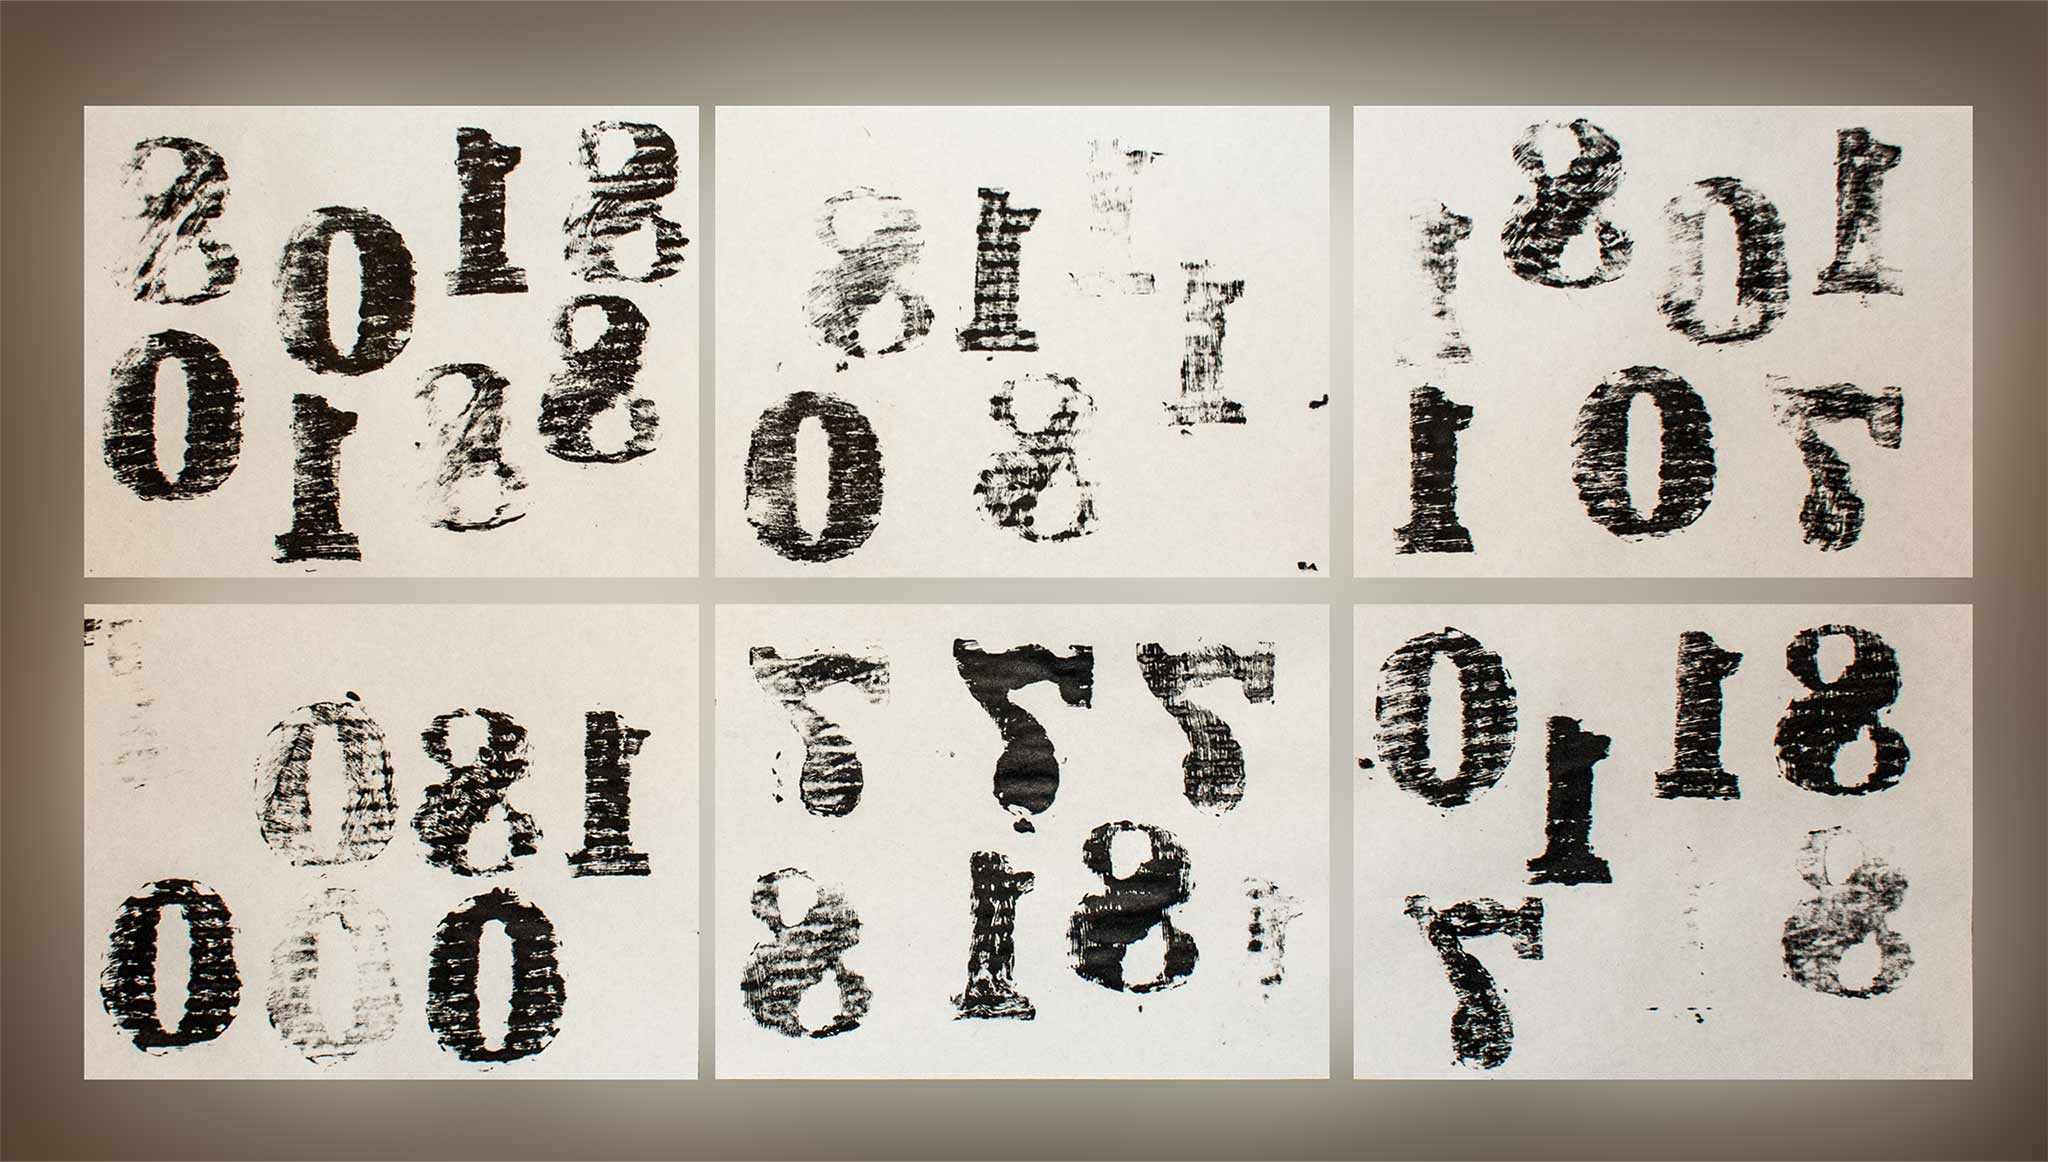 8 0 1 8
0 1 8 8
8 1 1 1
0 8
1 8 0 1
1 0 7
1 0 8 1
0 0 0
7 7 7
8 1 8 1
0 1 1 8
7 8